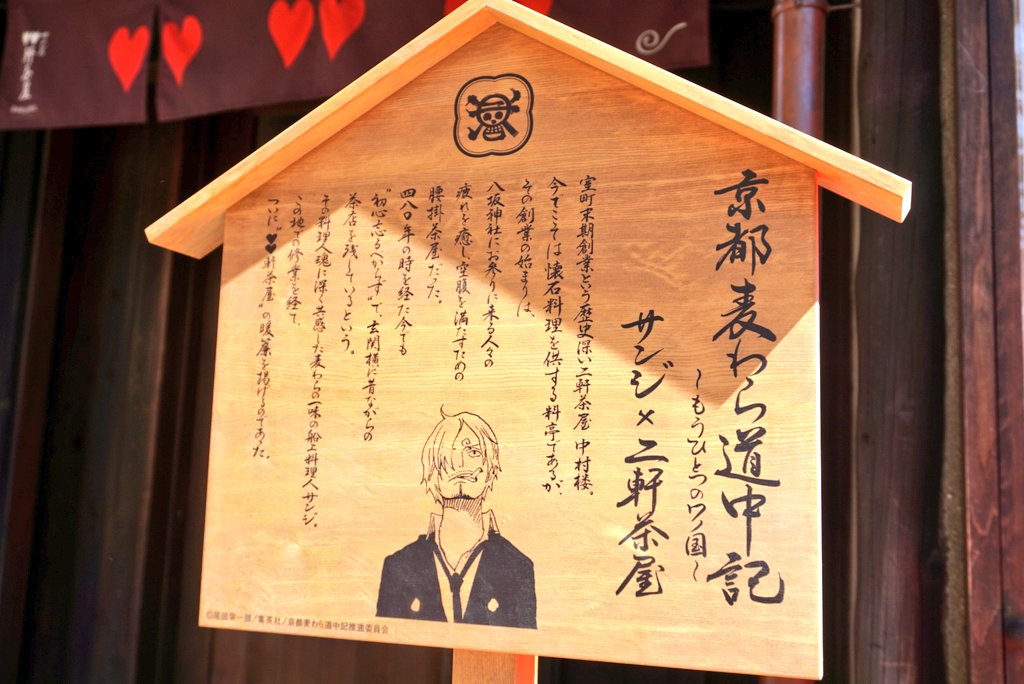 京都麦わら道中記
～もうひとつのワノ国～
サンジ×二軒茶屋
室町末期創業という歴史深い二軒茶屋 中村楼。
今でこそは懐石料理を供する料亭であるが、
その創業の始まりは、
八坂神社にお参りに来る人々の
疲れを癒し、空腹を満たすための
腰掛茶屋だった。
四八〇年の時を経た今でも
“初心忘るべからず”で、玄関横に昔ながらの
茶店を残しているという。
その料理人魂に深く共感した麦わらの一味の船上料理人サンジ。
この地での修業を経て、
ついに“♥♥軒茶屋”の暖簾を掲げるのであった。
©尾田栄一郎/集英社/京都麦わら道中記推進委員会